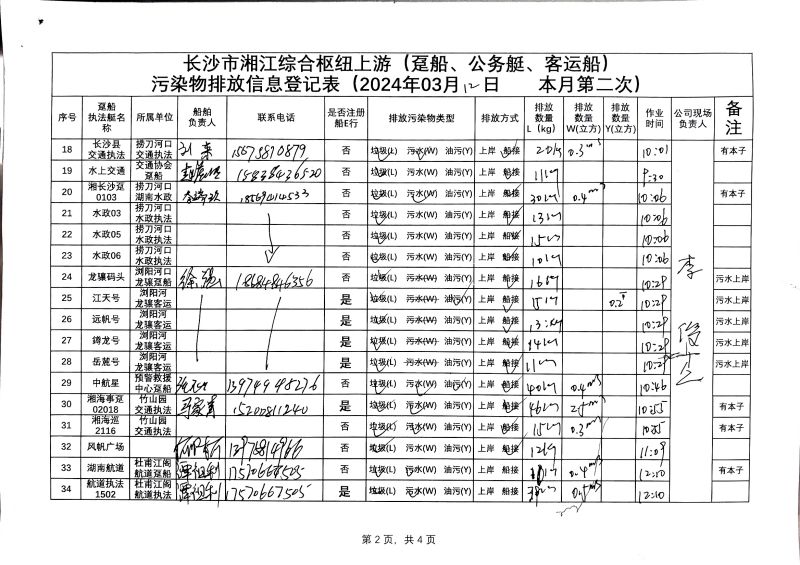 长沙市湘江综合枢纽上游（趸船、公务艇、客运船）
污染物排放信息登记表（2024年03月12日 本月第二次）
序号 趸船执法艇名称 所属单位 船舶负责人 联系电话 是否注册船E行 排放污染物类型 排放方式 排放数量L（kg） 排放数量W(立方) 排放数量Y(立方) 作业时间 公司现场负责人 备注
18 长沙县交通执法 捞刀河口交通执法 否 垃圾(L) 污水(W) 油污(Y) 上岸 船接 0.3m³ 10:01 有本子
19 水上交通 交通协会趸船 否 垃圾(L) 污水(W) 油污(Y) 上岸 船接 11kg
20 湘长沙趸0103 捞刀河口湖南水政 否 垃圾(L) 污水(W) 油污(Y) 上岸 船接 30kg 0.4m³ 10:06 有本子
21 水政03 捞刀河口水政执法 否 垃圾(L) 污水(W) 油污(Y) 上岸 船接 13kg 10:06
22 水政05 捞刀河口水政执法 否 垃圾(L) 污水(W) 油污(Y) 上岸 船接 15kg 10:06
23 水政06 捞刀河口水政执法 否 垃圾(L) 污水(W) 油污(Y) 上岸 船接 10kg 10:06
24 龙骧码头 浏阳河口龙骧趸船 18684846356 否 垃圾(L) 污水(W) 油污(Y) 上岸 船接 16kg 10:29 污水上岸
25 江天号 浏阳河龙骧客运 是 垃圾(L) 污水(W) 油污(Y) 上岸 船接 10:29 污水上岸
26 远帆号 浏阳河龙骧客运 是 垃圾(L) 污水(W) 油污(Y) 上岸 船接 10:29 污水上岸
27 鳟龙号 浏阳河龙骧客运 是 垃圾(L) 污水(W) 油污(Y) 上岸 船接 14kg 10:29 污水上岸
28 岳麓号 浏阳河龙骧客运 是 垃圾(L) 污水(W) 油污(Y) 上岸 船接 11kg 10:29 污水上岸
29 中航星 预警救援中心趸船 13974998276 否 垃圾(L) 污水(W) 油污(Y) 上岸 船接 40kg 0.4m³ 10:46
30 湘海事趸02018 竹山园交通执法 15200811240 否 垃圾(L) 污水(W) 油污(Y) 上岸 船接 46kg 10:55 有本子
31 湘海巡2116 竹山园交通执法 否 垃圾(L) 污水(W) 油污(Y) 上岸 船接 15kg 0.3m³ 10:55 有本子
32 风帆广场 否 垃圾(L) 污水(W) 油污(Y) 上岸 船接 12kg 11:09
33 湖南航道 杜甫江阁航道趸船 17570667505 否 垃圾(L) 污水(W) 油污(Y) 上岸 船接 0.4m³ 12:10 有本子
34 航道执法1502 杜甫江阁航道执法 17570667505 是 垃圾(L) 污水(W) 油污(Y) 上岸 船接 12:10
第 2 页，共 4 页